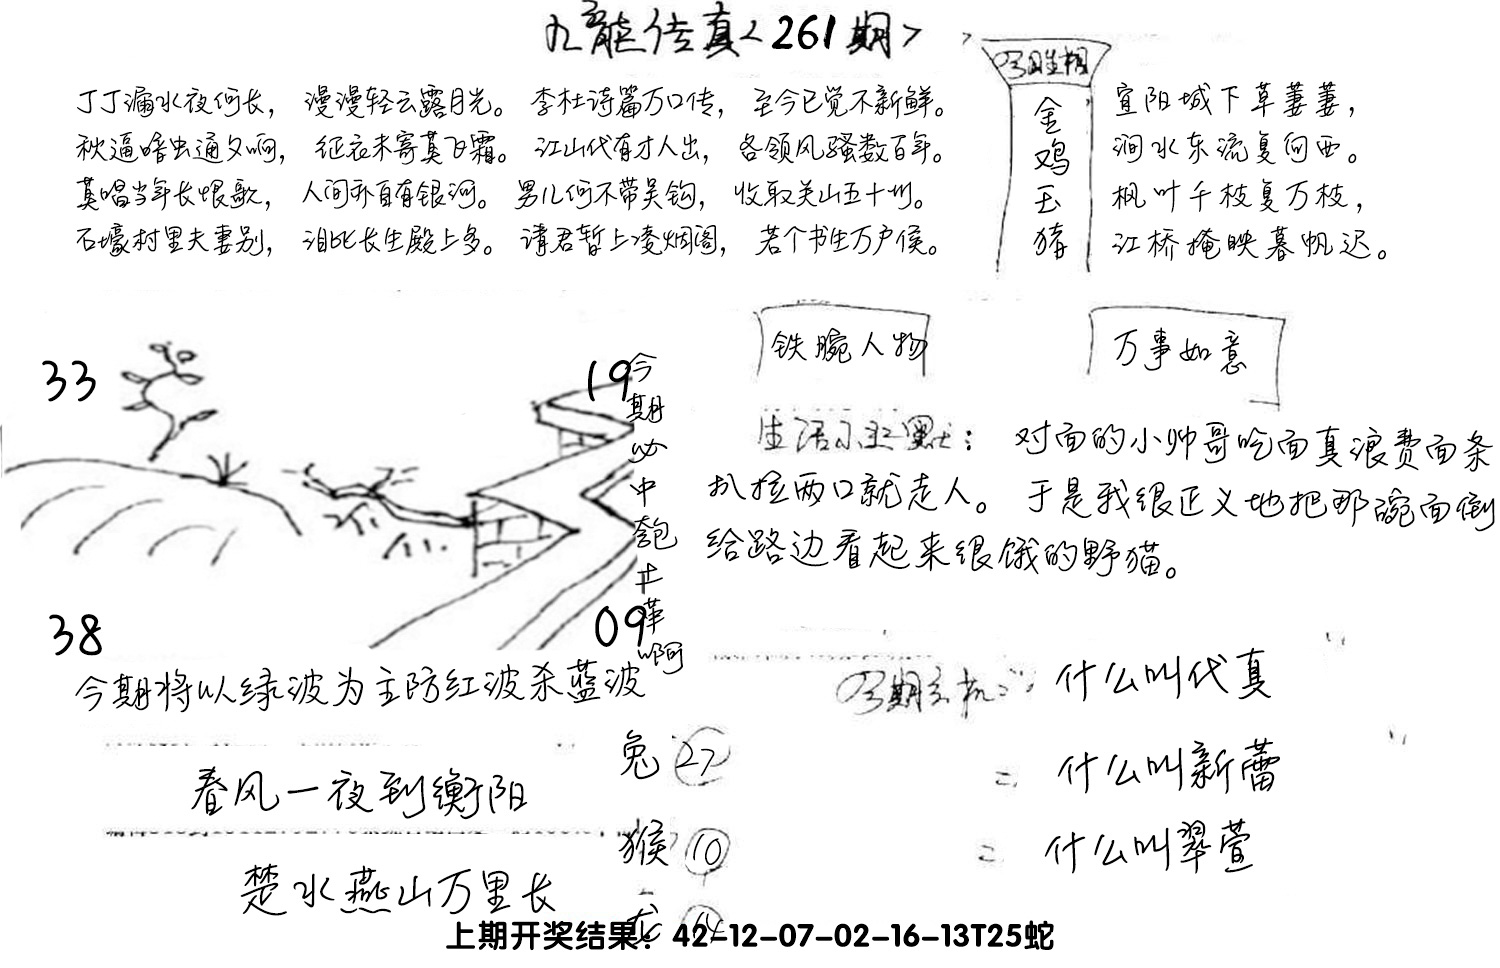 九龙传真<261期>
丁丁漏水夜何长，漫漫轻云露月光。李杜诗篇万口传，至今已觉不新鲜。
秋逼暗虫通夕响，征衣未寄莫飞霜。江山代有才人出，各领风骚数百年。
莫唱当年长恨歌，人间亦自有银河。男儿何不带吴钩，收取关山五十州。
石壕村里夫妻别，泪比长生殿上多。请君暂上凌烟阁，若个书生万户侯。
今期生相
金鸡玉猪
宜阳城下草萋萋，
涧水东流复向西。
枫叶千枝复万枝，
江桥掩映暮帆迟。
铁腕人物
万事如意
33
19
38
09
今期必中
啊
生活小幽默：对面的小帅哥吃面真浪费面条
扒拉两口就走人。于是我很正义地把那碗面倒
给路边看起来很饿的野猫。
今期将以绿波为主防红波杀蓝波
今期玄机：什么叫代真
=什么叫新蕾
=什么叫翠萱
春风一夜到衡阳
楚水燕山万里长
兔 27
猴 10
上期开奖结果：42-12-07-02-16-13T25蛇